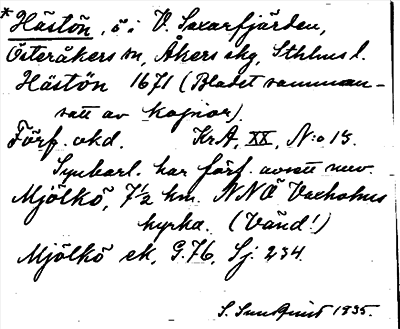 * Hästön, ö i V. Saxarfjärden,
Österåkers sn, Åkers skg, Sthlms l.
Hästön 1671 (Bladet samman-
satt av kopior).
Förf. okd. KrA, XX, N:o 13.
Synbarl. har förf. avsett nuv.
Mjölkö, 7½ km. NNÖ Vaxholms
kyrka. (Vänd!)
Mjölkö ek, G. 76, Sj: 234.
S. Sundquist 1935.